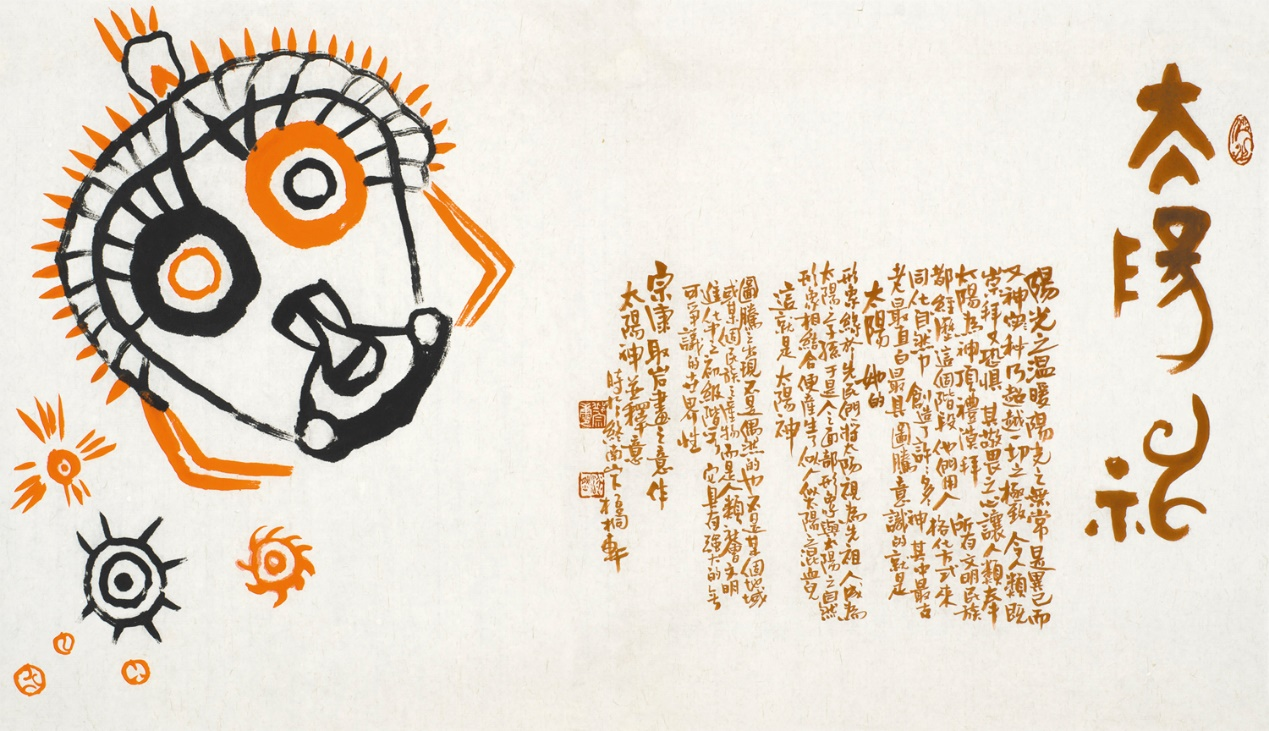 太陽神
陽光之温暖陽光之無常是異己而
又神 乃超越一切之極致令人類既
崇拜又恐惧其敬畏之心讓人類奉
太陽為神頂禮漠拜 所有文明民族
都經歷這個階段他們用人格化方式來
同化自然力創造了許多神其中最古
老最直白最具圖騰意識的就是
太陽 她的
形象終於先民們將太陽視為先祖人成為
太陽之子孫于是人之面部形象與太陽之自然
形象相結合便產生似人似太陽之混血兒
這就是太陽神
圖騰之出現不是偶然的也不是某個地域
或某個民族之產物而是人類 文明
進化中之初級階段它具有强大的無
可爭議的世界性
宗康取岩畫之意作
太陽神並釋意
時於終南 桐軒